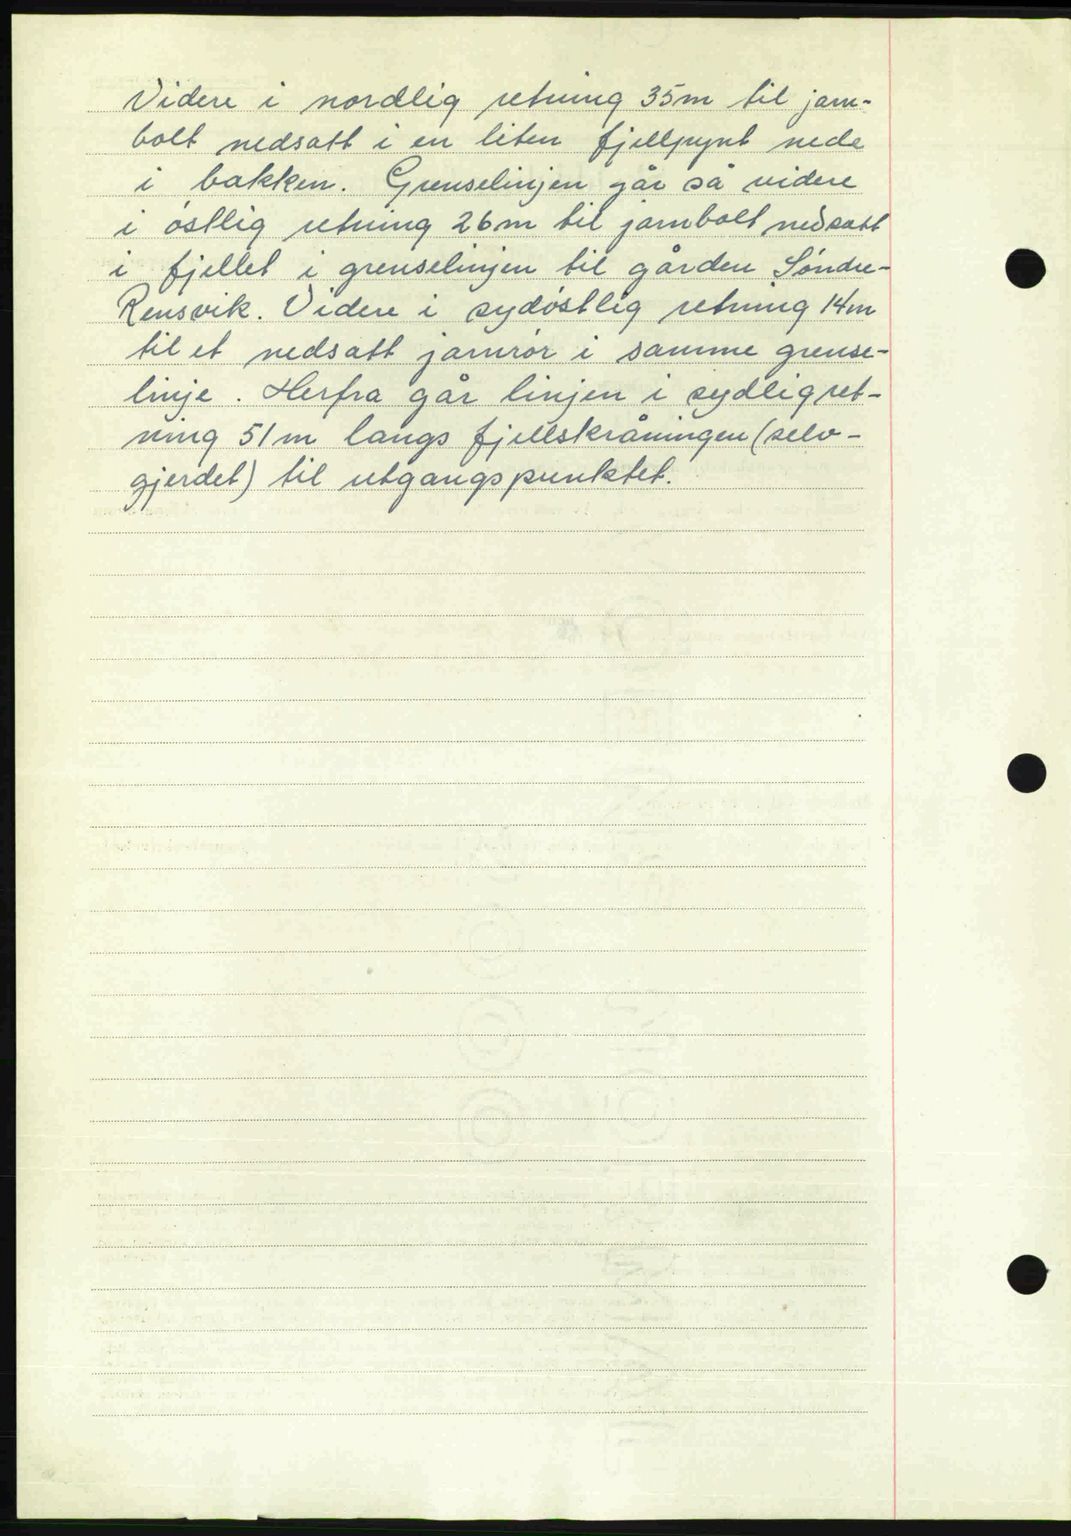 Videre i nordlig retning 35m til jarn-
bolt nedsatt i en liten fjellpynt nede
i bakken. Grenselinjen går så videre
i östlig retning 26m til jarnbolt nedsatt
i fjellet i grenselinjen til gården Söndre-
Rensvik. Videre i sydöstlig retning 14m
til et nedsatt jarnrör i samme grense-
linje. Herfra går linjen i sydlig ret-
ning 51m langs fjellskråningen (selv-
gjerdet) til utgangspunktet.